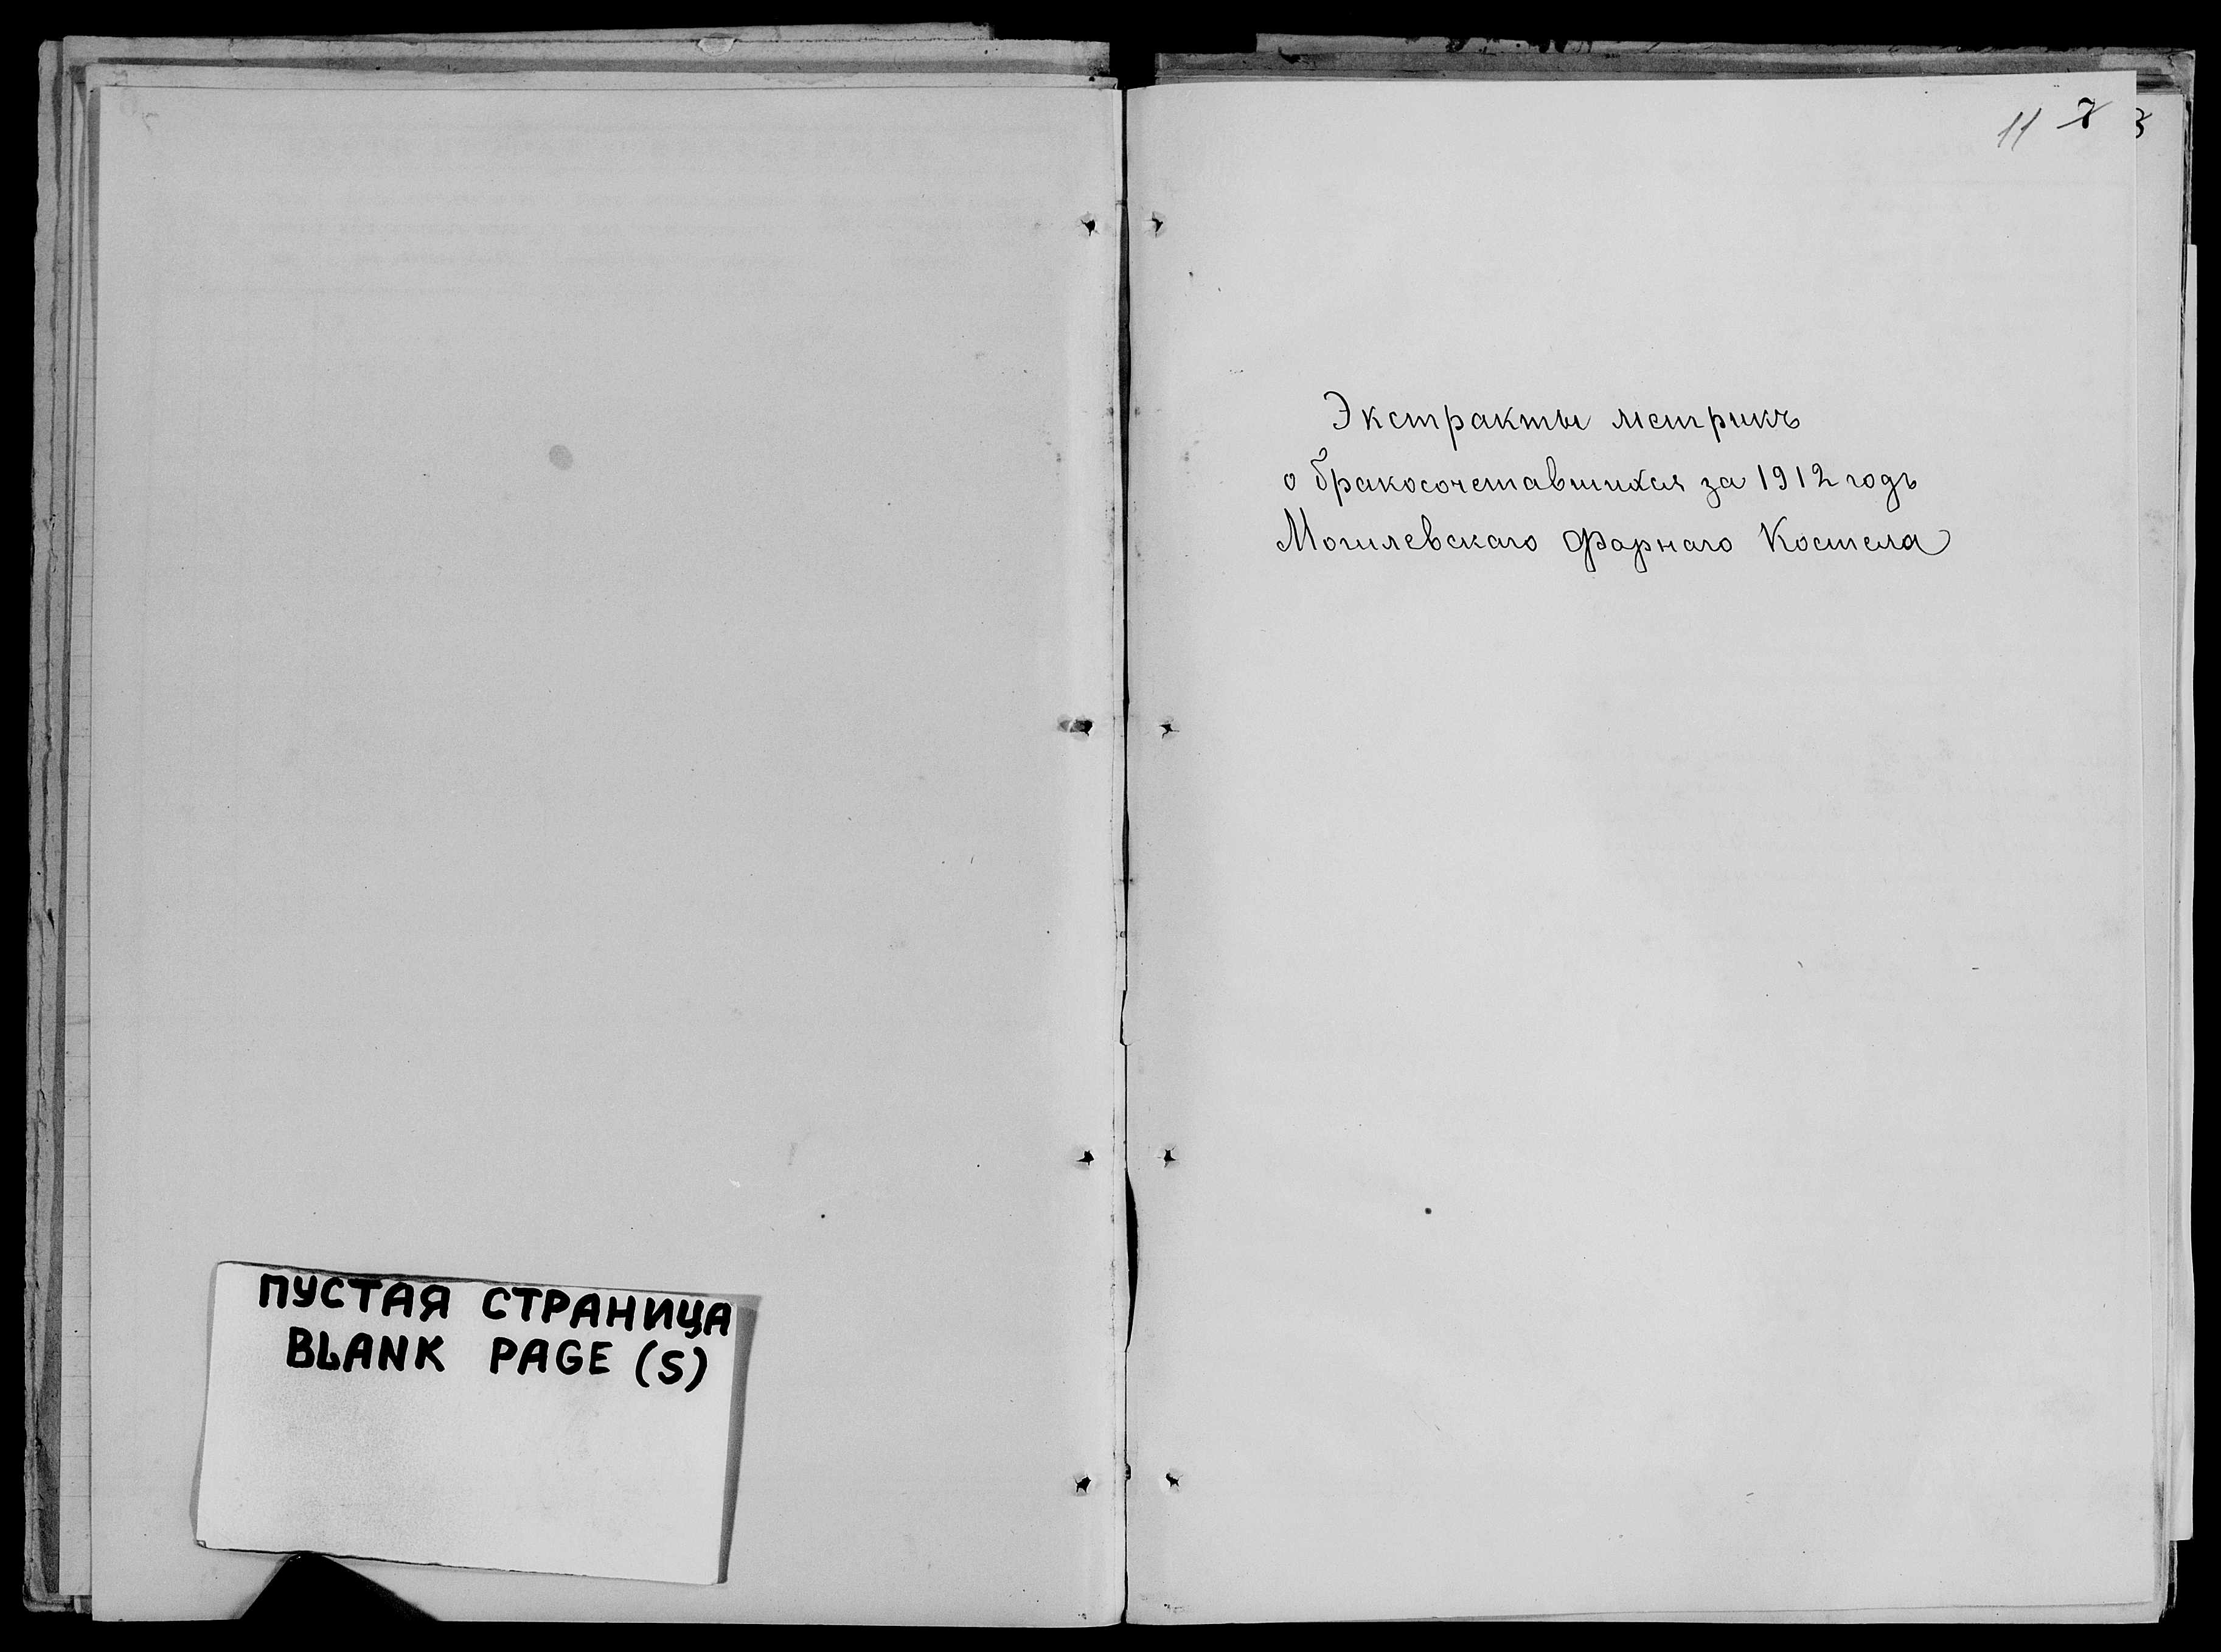 ПУСТАЯ СТРАНИЦА
BLANK PAGE (S)
11 7 3
Экстракты метрикъ
о бракосочетавшихся за 1912 годъ
Могилевскаго Фарнаго Костела